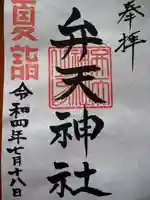 奉拝
弁天神社
夏詣
令和四年七月十八日